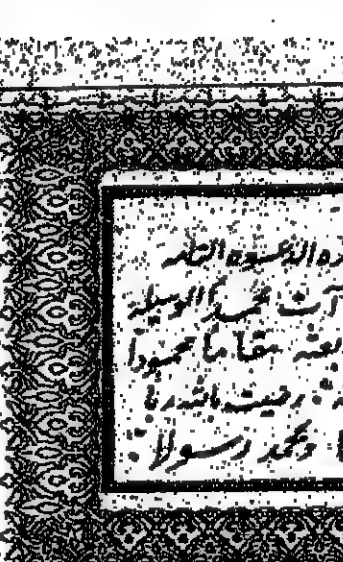 ذه الدعوة التامة
آت محمدا الوسيلة
بعثه مقاما محمودا
رضيت بالله ربا
ومحمد رسولا